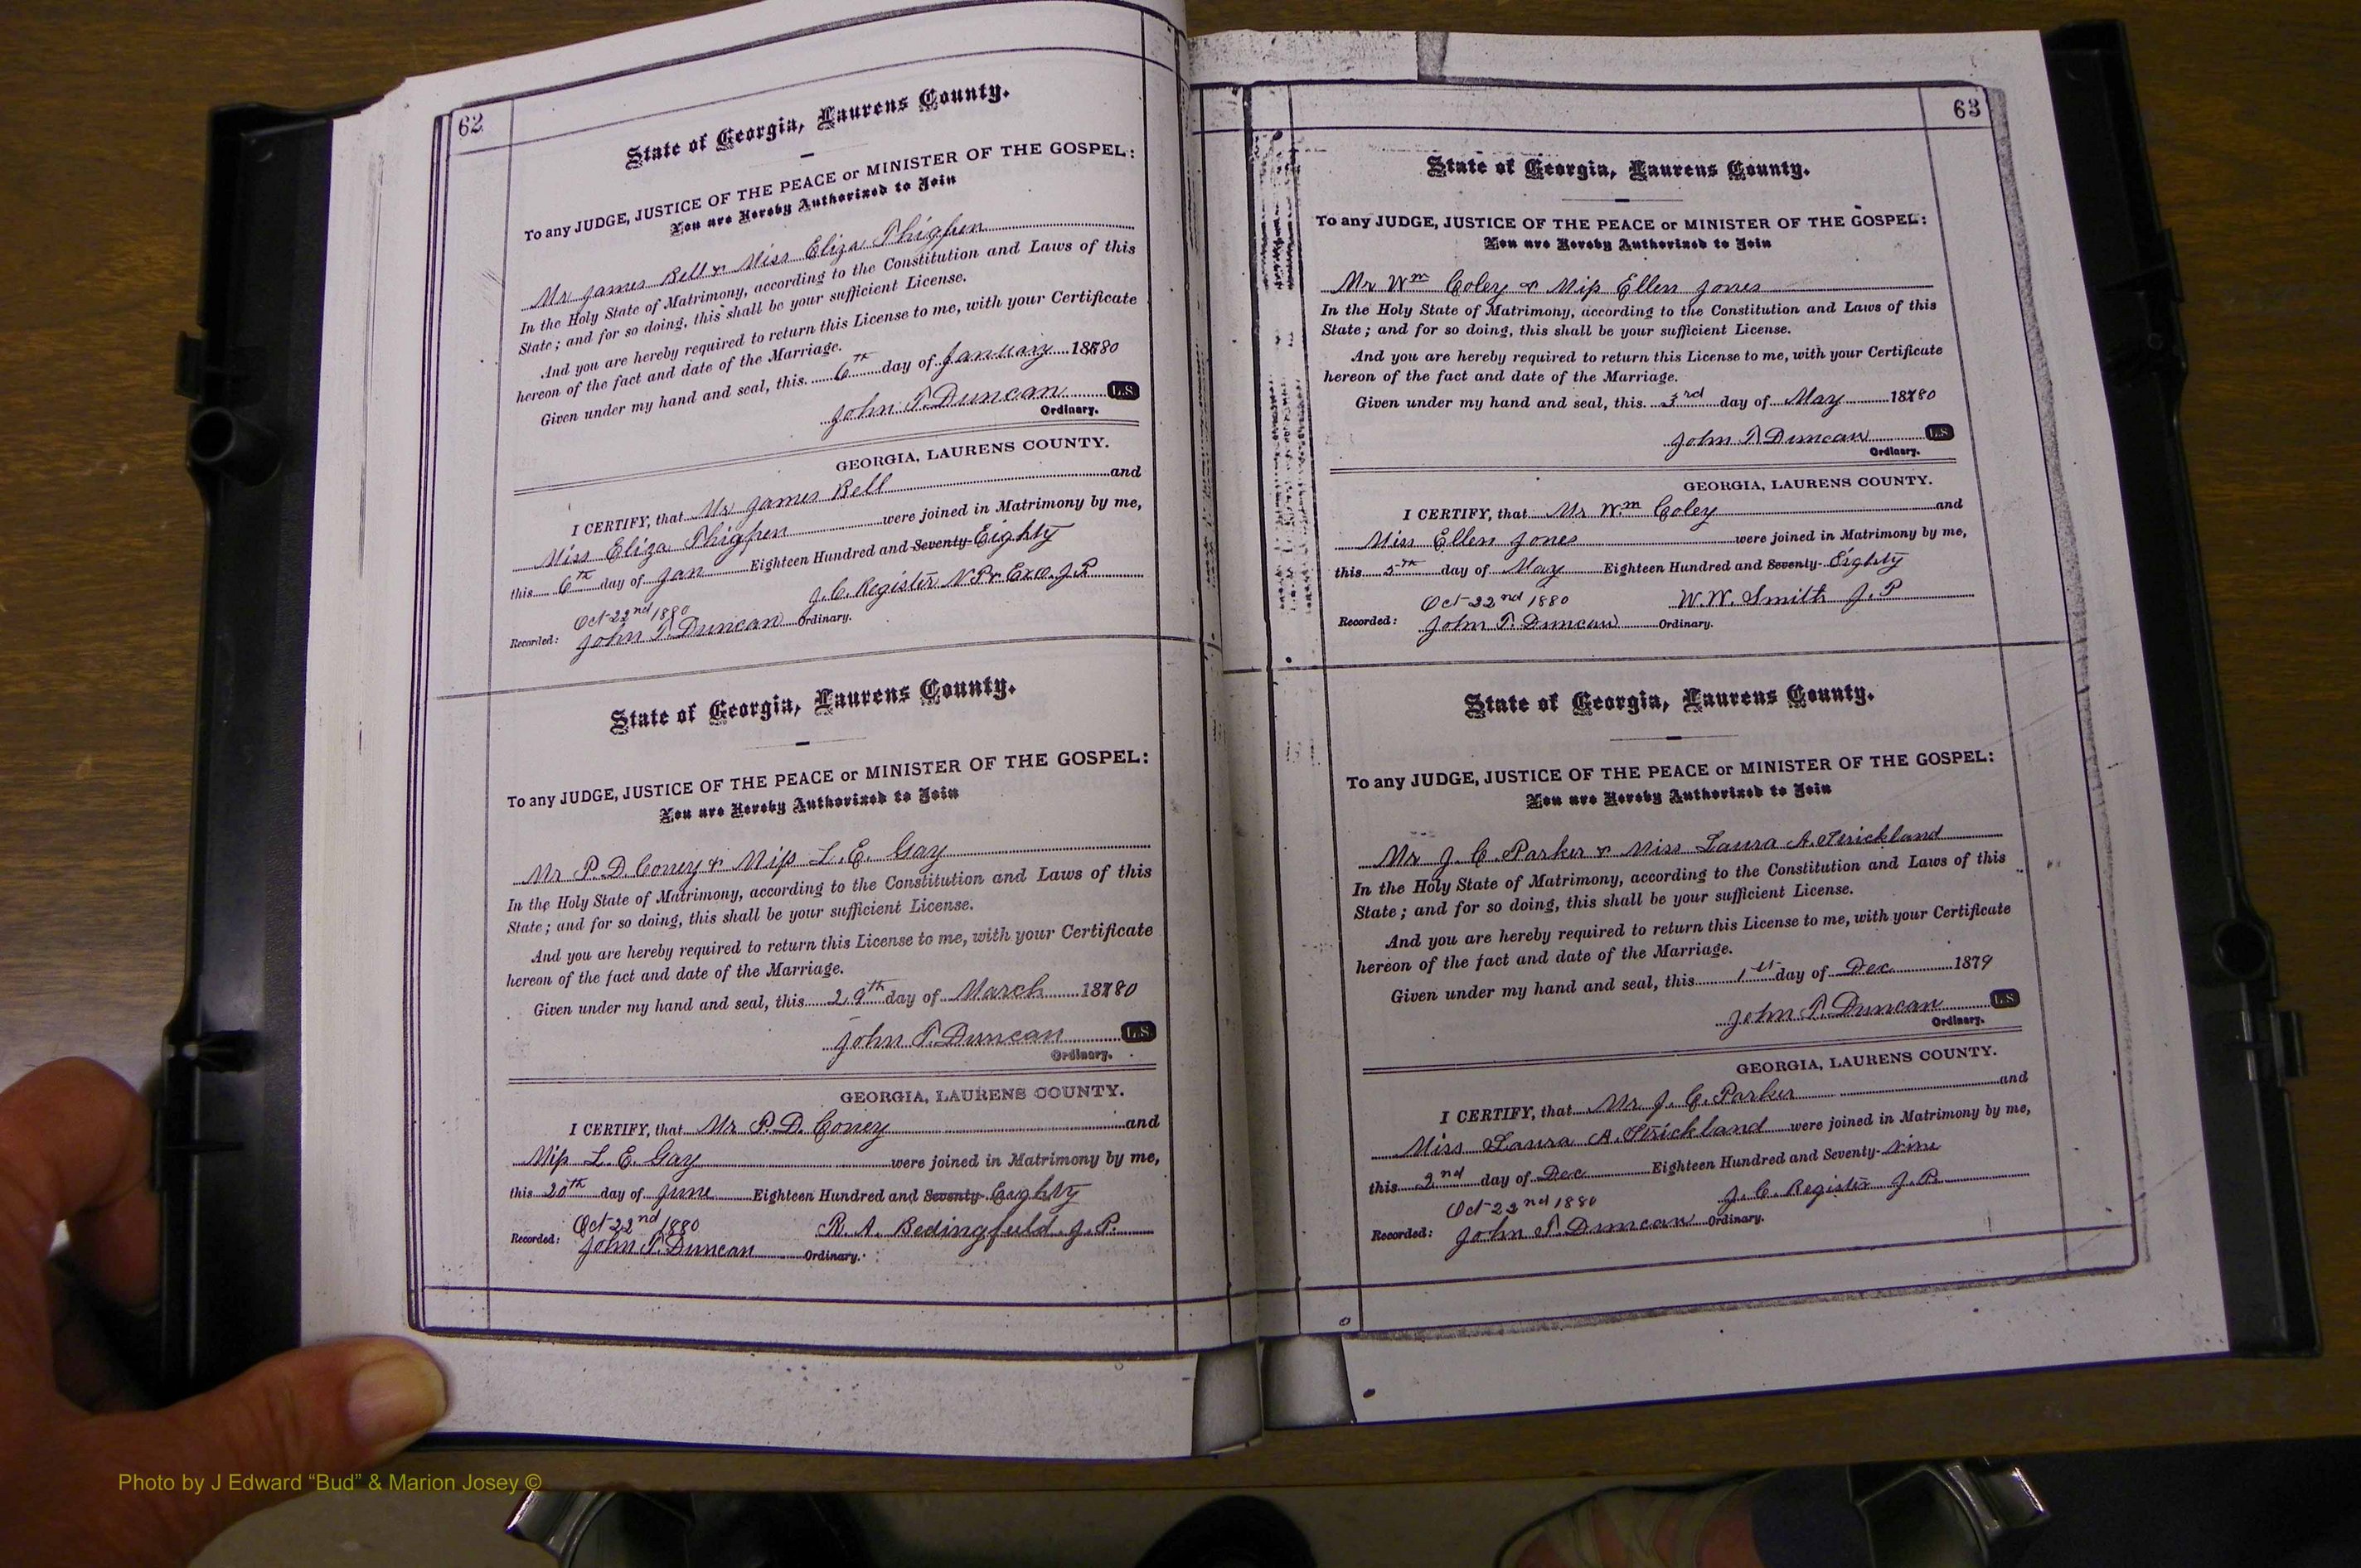 62
State of Georgia, Laurens County.
To any JUDGE, JUSTICE OF THE PEACE or MINISTER OF THE GOSPEL:
You are Hereby Authorized to Join
Mr James Bell & Miss Eliza Thigpen
In the Holy State of Matrimony, according to the Constitution and Laws of this
State; and for so doing, this shall be your sufficient License.
And you are hereby required to return this License to me, with your Certificate
hereon of the fact and date of the Marriage.
Given under my hand and seal, this 6th day of January 18780
John T. Duncan L.S.
Ordinary.
GEORGIA, LAURENS COUNTY.
I CERTIFY, that Mr James Bell and
Miss Eliza Thigpen were joined in Matrimony by me,
this 6th day of Jan Eighteen Hundred and Seventy- Eighty
J. C. Register N.P. & Exo. J.P.
Oct 22nd 1880
Recorded: John T. Duncan Ordinary.
State of Georgia, Laurens County.
To any JUDGE, JUSTICE OF THE PEACE or MINISTER OF THE GOSPEL:
You are Hereby Authorized to Join
Mr P. D. Coney & Miss L. E. Gay
In the Holy State of Matrimony, according to the Constitution and Laws of this
State; and for so doing, this shall be your sufficient License.
And you are hereby required to return this License to me, with your Certificate
hereon of the fact and date of the Marriage.
Given under my hand and seal, this 29th day of March 18780
John T. Duncan L.S.
Ordinary.
GEORGIA, LAURENS COUNTY.
I CERTIFY, that Mr P. D. Coney and
Miss L. E. Gay were joined in Matrimony by me,
this 20th day of June Eighteen Hundred and Seventy- Eighty
Oct 22nd 1880 R. A. Bedingfield J.P.
Recorded: John T. Duncan Ordinary.
63
State of Georgia, Laurens County.
To any JUDGE, JUSTICE OF THE PEACE or MINISTER OF THE GOSPEL:
You are Hereby Authorized to Join
Mr Wm Coley & Miss Ellen Jones
In the Holy State of Matrimony, according to the Constitution and Laws of this
State; and for so doing, this shall be your sufficient License.
And you are hereby required to return this License to me, with your Certificate
hereon of the fact and date of the Marriage.
Given under my hand and seal, this 3rd day of May 18780
John T. Duncan L.S.
Ordinary.
GEORGIA, LAURENS COUNTY.
I CERTIFY, that Mr Wm Coley and
Miss Ellen Jones were joined in Matrimony by me,
this 5th day of May Eighteen Hundred and Seventy- Eighty
Oct 22nd 1880 W. W. Smith J.P
Recorded: John T. Duncan Ordinary.
State of Georgia, Laurens County.
To any JUDGE, JUSTICE OF THE PEACE or MINISTER OF THE GOSPEL:
You are Hereby Authorized to Join
Mr J. C. Parker & Miss Laura A. Strickland
In the Holy State of Matrimony, according to the Constitution and Laws of this
State; and for so doing, this shall be your sufficient License.
And you are hereby required to return this License to me, with your Certificate
hereon of the fact and date of the Marriage.
Given under my hand and seal, this 1st day of Dec 1879
John T. Duncan L.S.
Ordinary.
GEORGIA, LAURENS COUNTY.
I CERTIFY, that Mr J. C. Parker and
Miss Laura A. Strickland were joined in Matrimony by me,
this 2nd day of Dec Eighteen Hundred and Seventy- nine
Oct 22nd 1880 J. C. Register J.P.
Recorded: John T. Duncan Ordinary.
Photo by J Edward “Bud” & Marion Josey ©